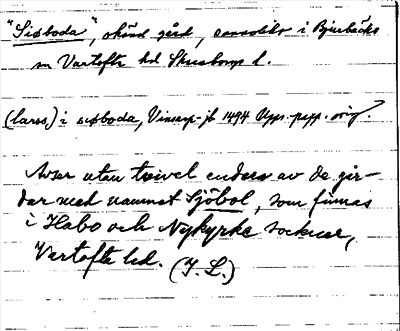 "Siøboda", okänd gård, sannolikt i Bjurbäcks
sn Vartofta hd Skaraborgs l.
(lars) i siøboda, Vinsarp-jb 1494 Upps. papp. orig.
Avser utan tvivel endera av de går-
dar med namnet Sjöbol, som finnas
i Habo och Nykyrke socknar,
Vartofta hd. (I. L.)